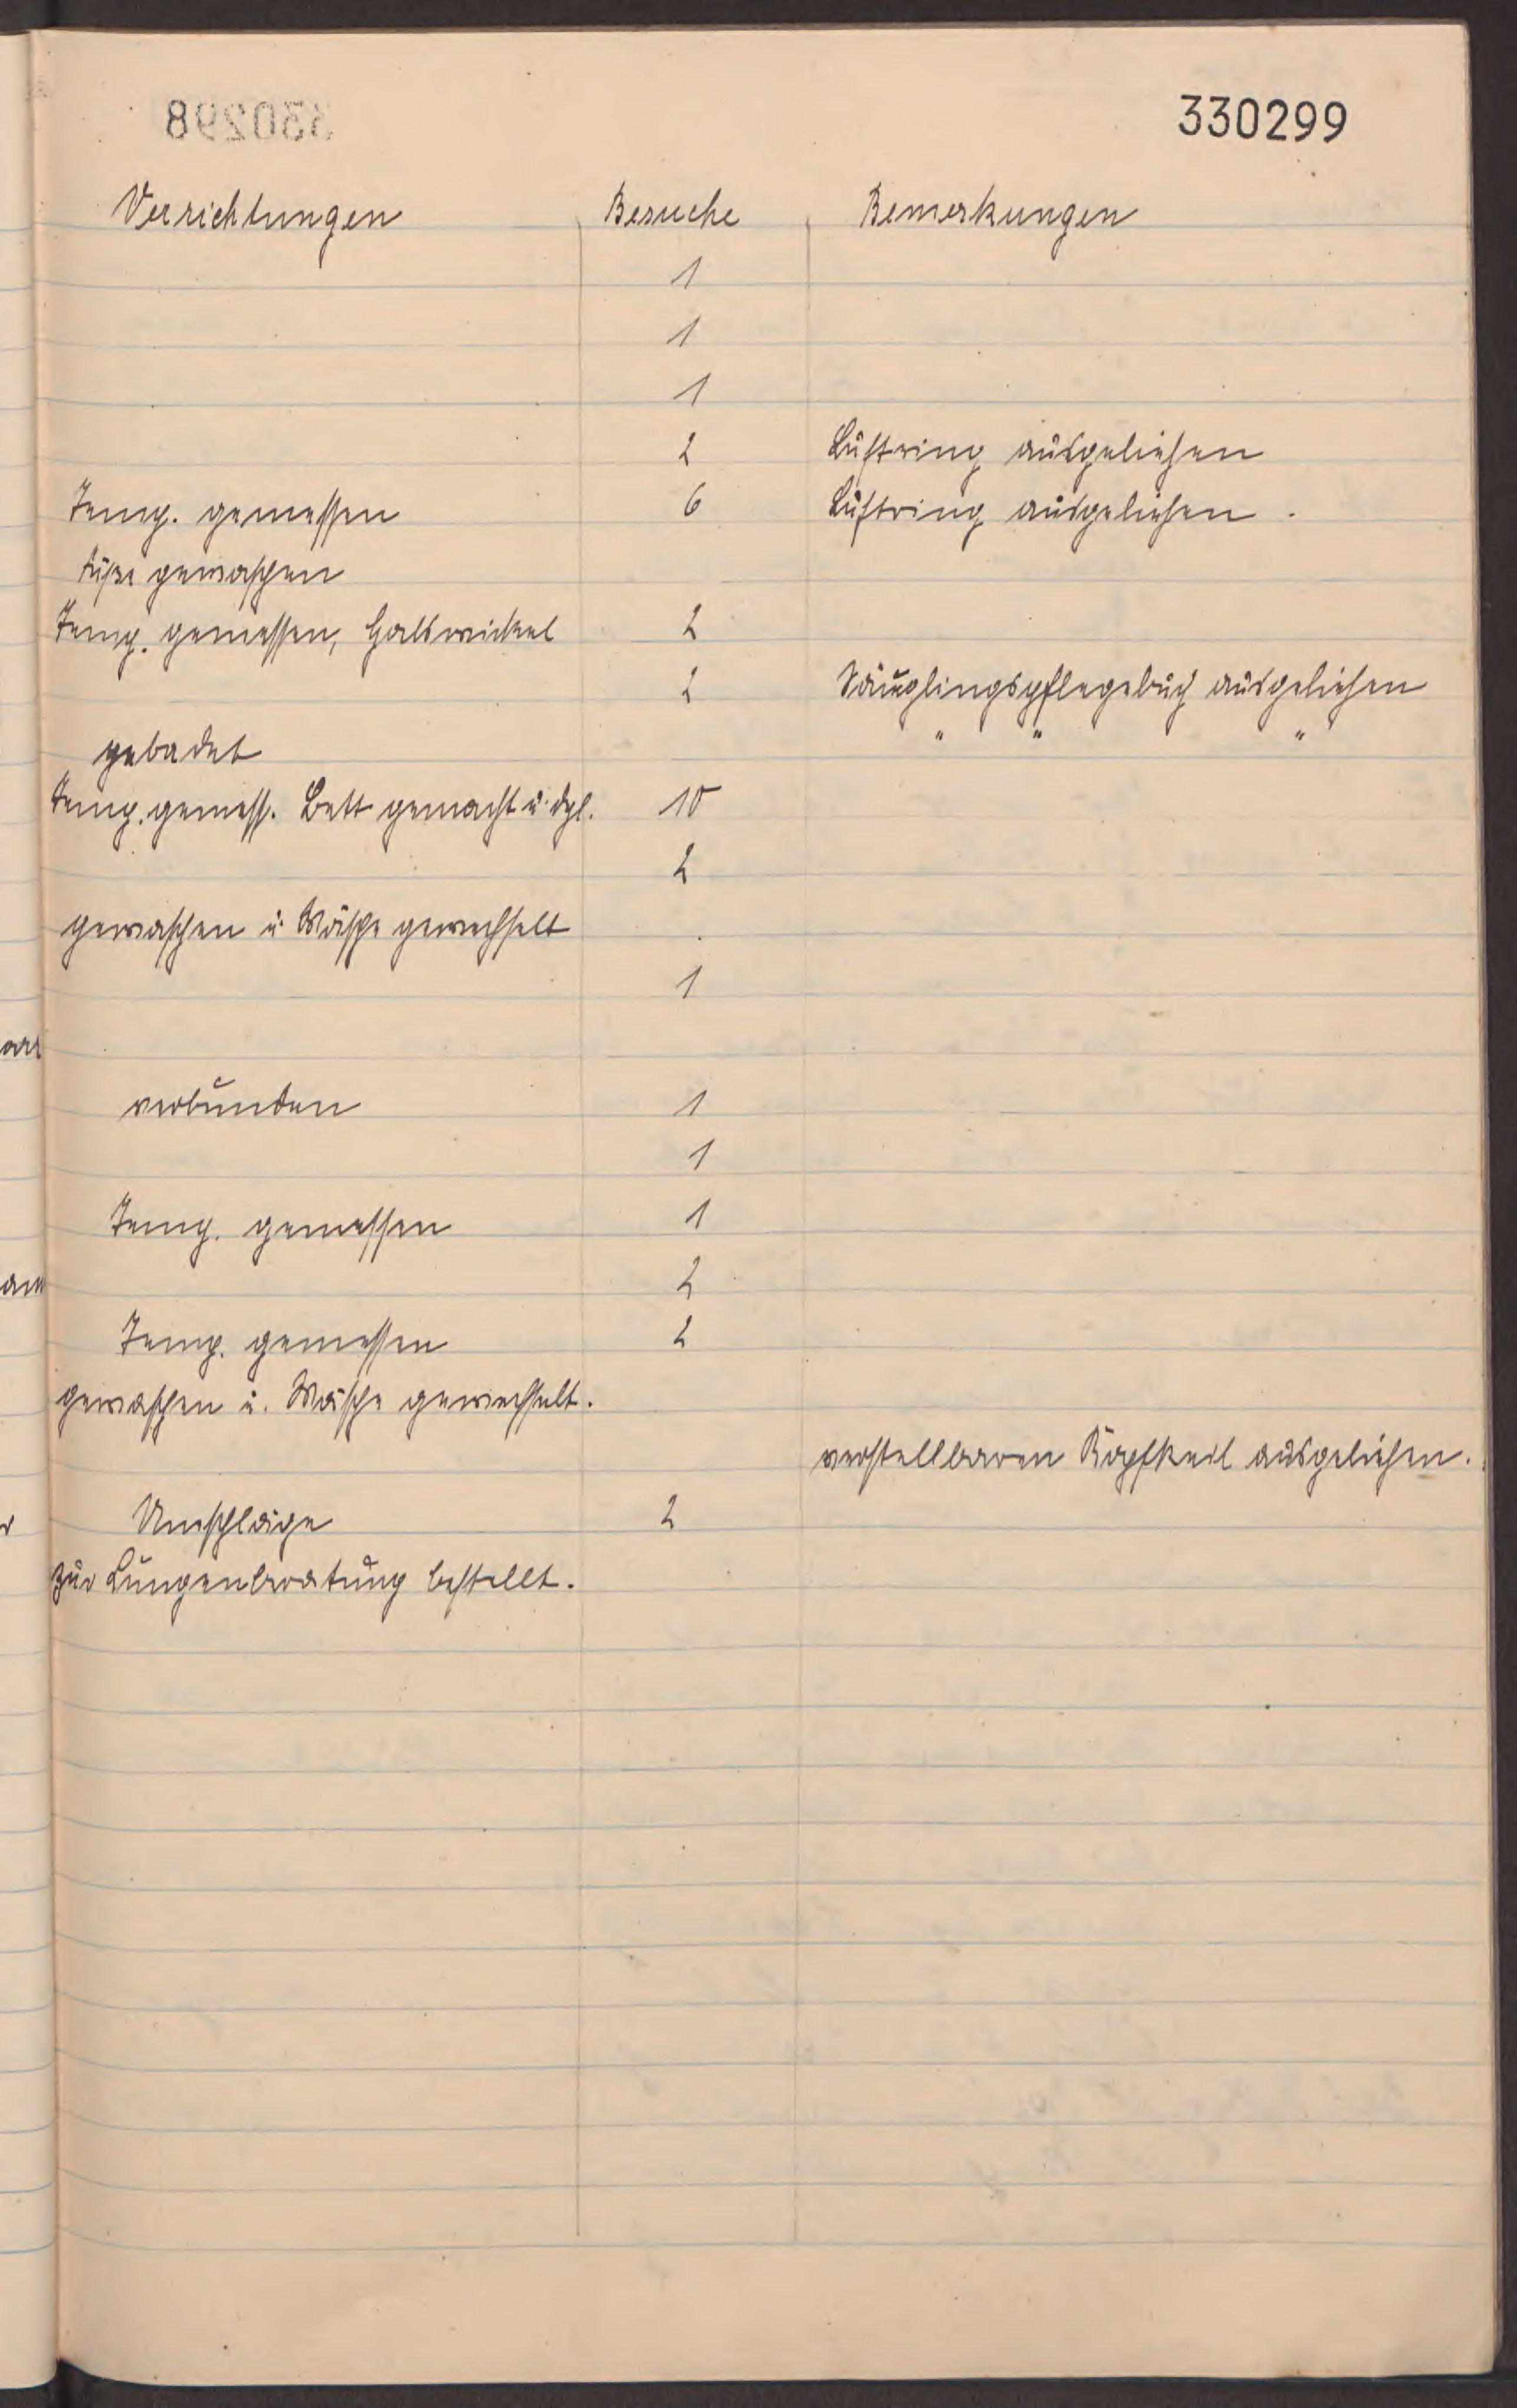 330298 330299
Verrichtungen Besuche Bemerkungen
1
1
1
2 Luftring ausgeliehen
Temp. gemessen 6 Luftring ausgeliehen.
Füße gewaschen
Temp. gemessen, Halswickel 2
2 Säuglingspflegebuch ausgeliehen
gebadet " " "
Temp. gemess. Bett gemacht u. dgl. 10
2
gewaschen u. Wäsche gewechselt
1
verbunden 1
1
Temp. gemessen 1
2
Temp. gemessen 2
gewaschen u. Wäsche gewechselt.
verstellbaren Kopfkeil ausgeliehen.
Umschläge 2
zur Lungenberatung bestellt.